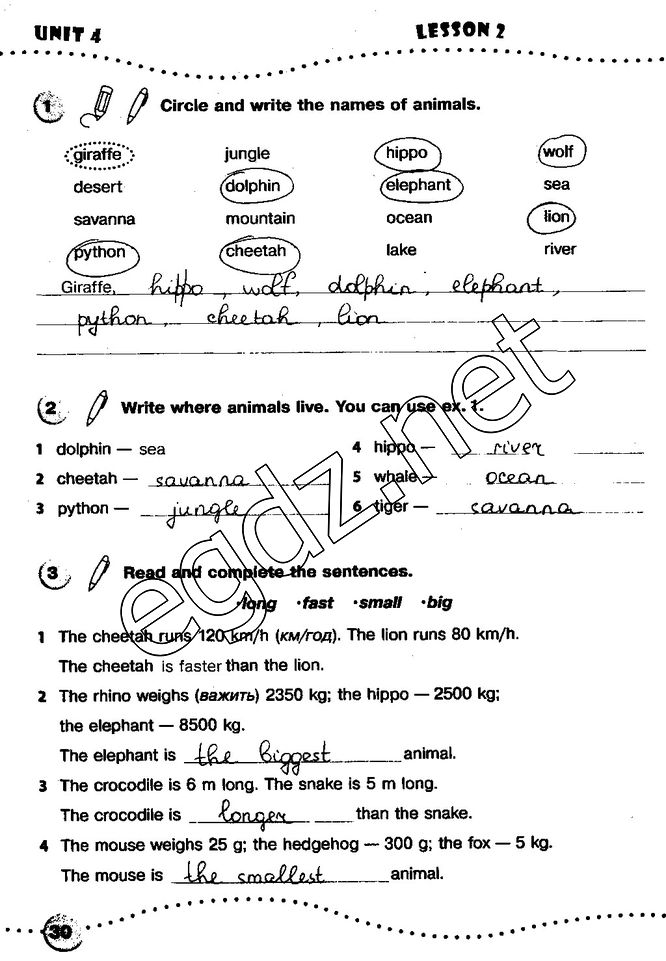 UNIT 4 LESSON 2
1 Circle and write the names of animals.
giraffe jungle hippo wolf
desert dolphin elephant sea
savanna mountain ocean lion
python cheetah lake river
Giraffe, hippo, wolf, dolphin, elephant,
python, cheetah, lion
2 Write where animals live. You can use ex. 1.
1 dolphin — sea 4 hippo — river
2 cheetah — savanna 5 whale — ocean
3 python — jungle 6 tiger — savanna
egdz.net
3 Read and complete the sentences.
•long •fast •small •big
1 The cheetah runs 120 km/h (км/год). The lion runs 80 km/h.
The cheetah is faster than the lion.
2 The rhino weighs (важить) 2350 kg; the hippo — 2500 kg;
the elephant — 8500 kg.
The elephant is the biggest animal.
3 The crocodile is 6 m long. The snake is 5 m long.
The crocodile is longer than the snake.
4 The mouse weighs 25 g; the hedgehog — 300 g; the fox — 5 kg.
The mouse is the smallest animal.
30